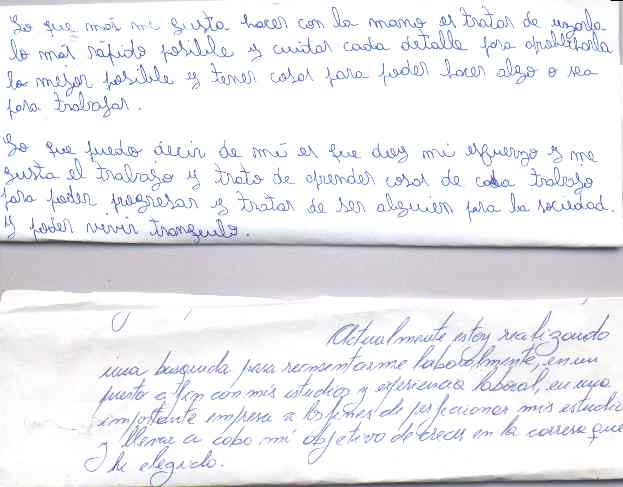 Lo que más me gusta hacer con la mano es tratar de usarla
lo más rápido posible y cuidar cada detalle para aprobecharla
lo mejor posible y tener cosas para poder hacer algo o sea
para trabajar.
Lo que puedo decir de mí es que doy mi esfuerzo y me
gusta el trabajo y trato de aprender cosas de cada trabajo
para poder progresar y tratar de ser alguien para la sociedad.
y poder vivir tranquilo.
Actualmente estoy realizando
una busqueda para reinsentarme laboralmente, en un
puesto a fin con mis estudios y experiencia laboral, en una
importante empresa a los fines de perfecionar mis estudio
y llevar a cabo mi objetivo de crecer en la carrera que
he elegido.